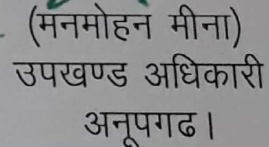 (मनमोहन मीना)
उपखण्ड अधिकारी
अनूपगढ।